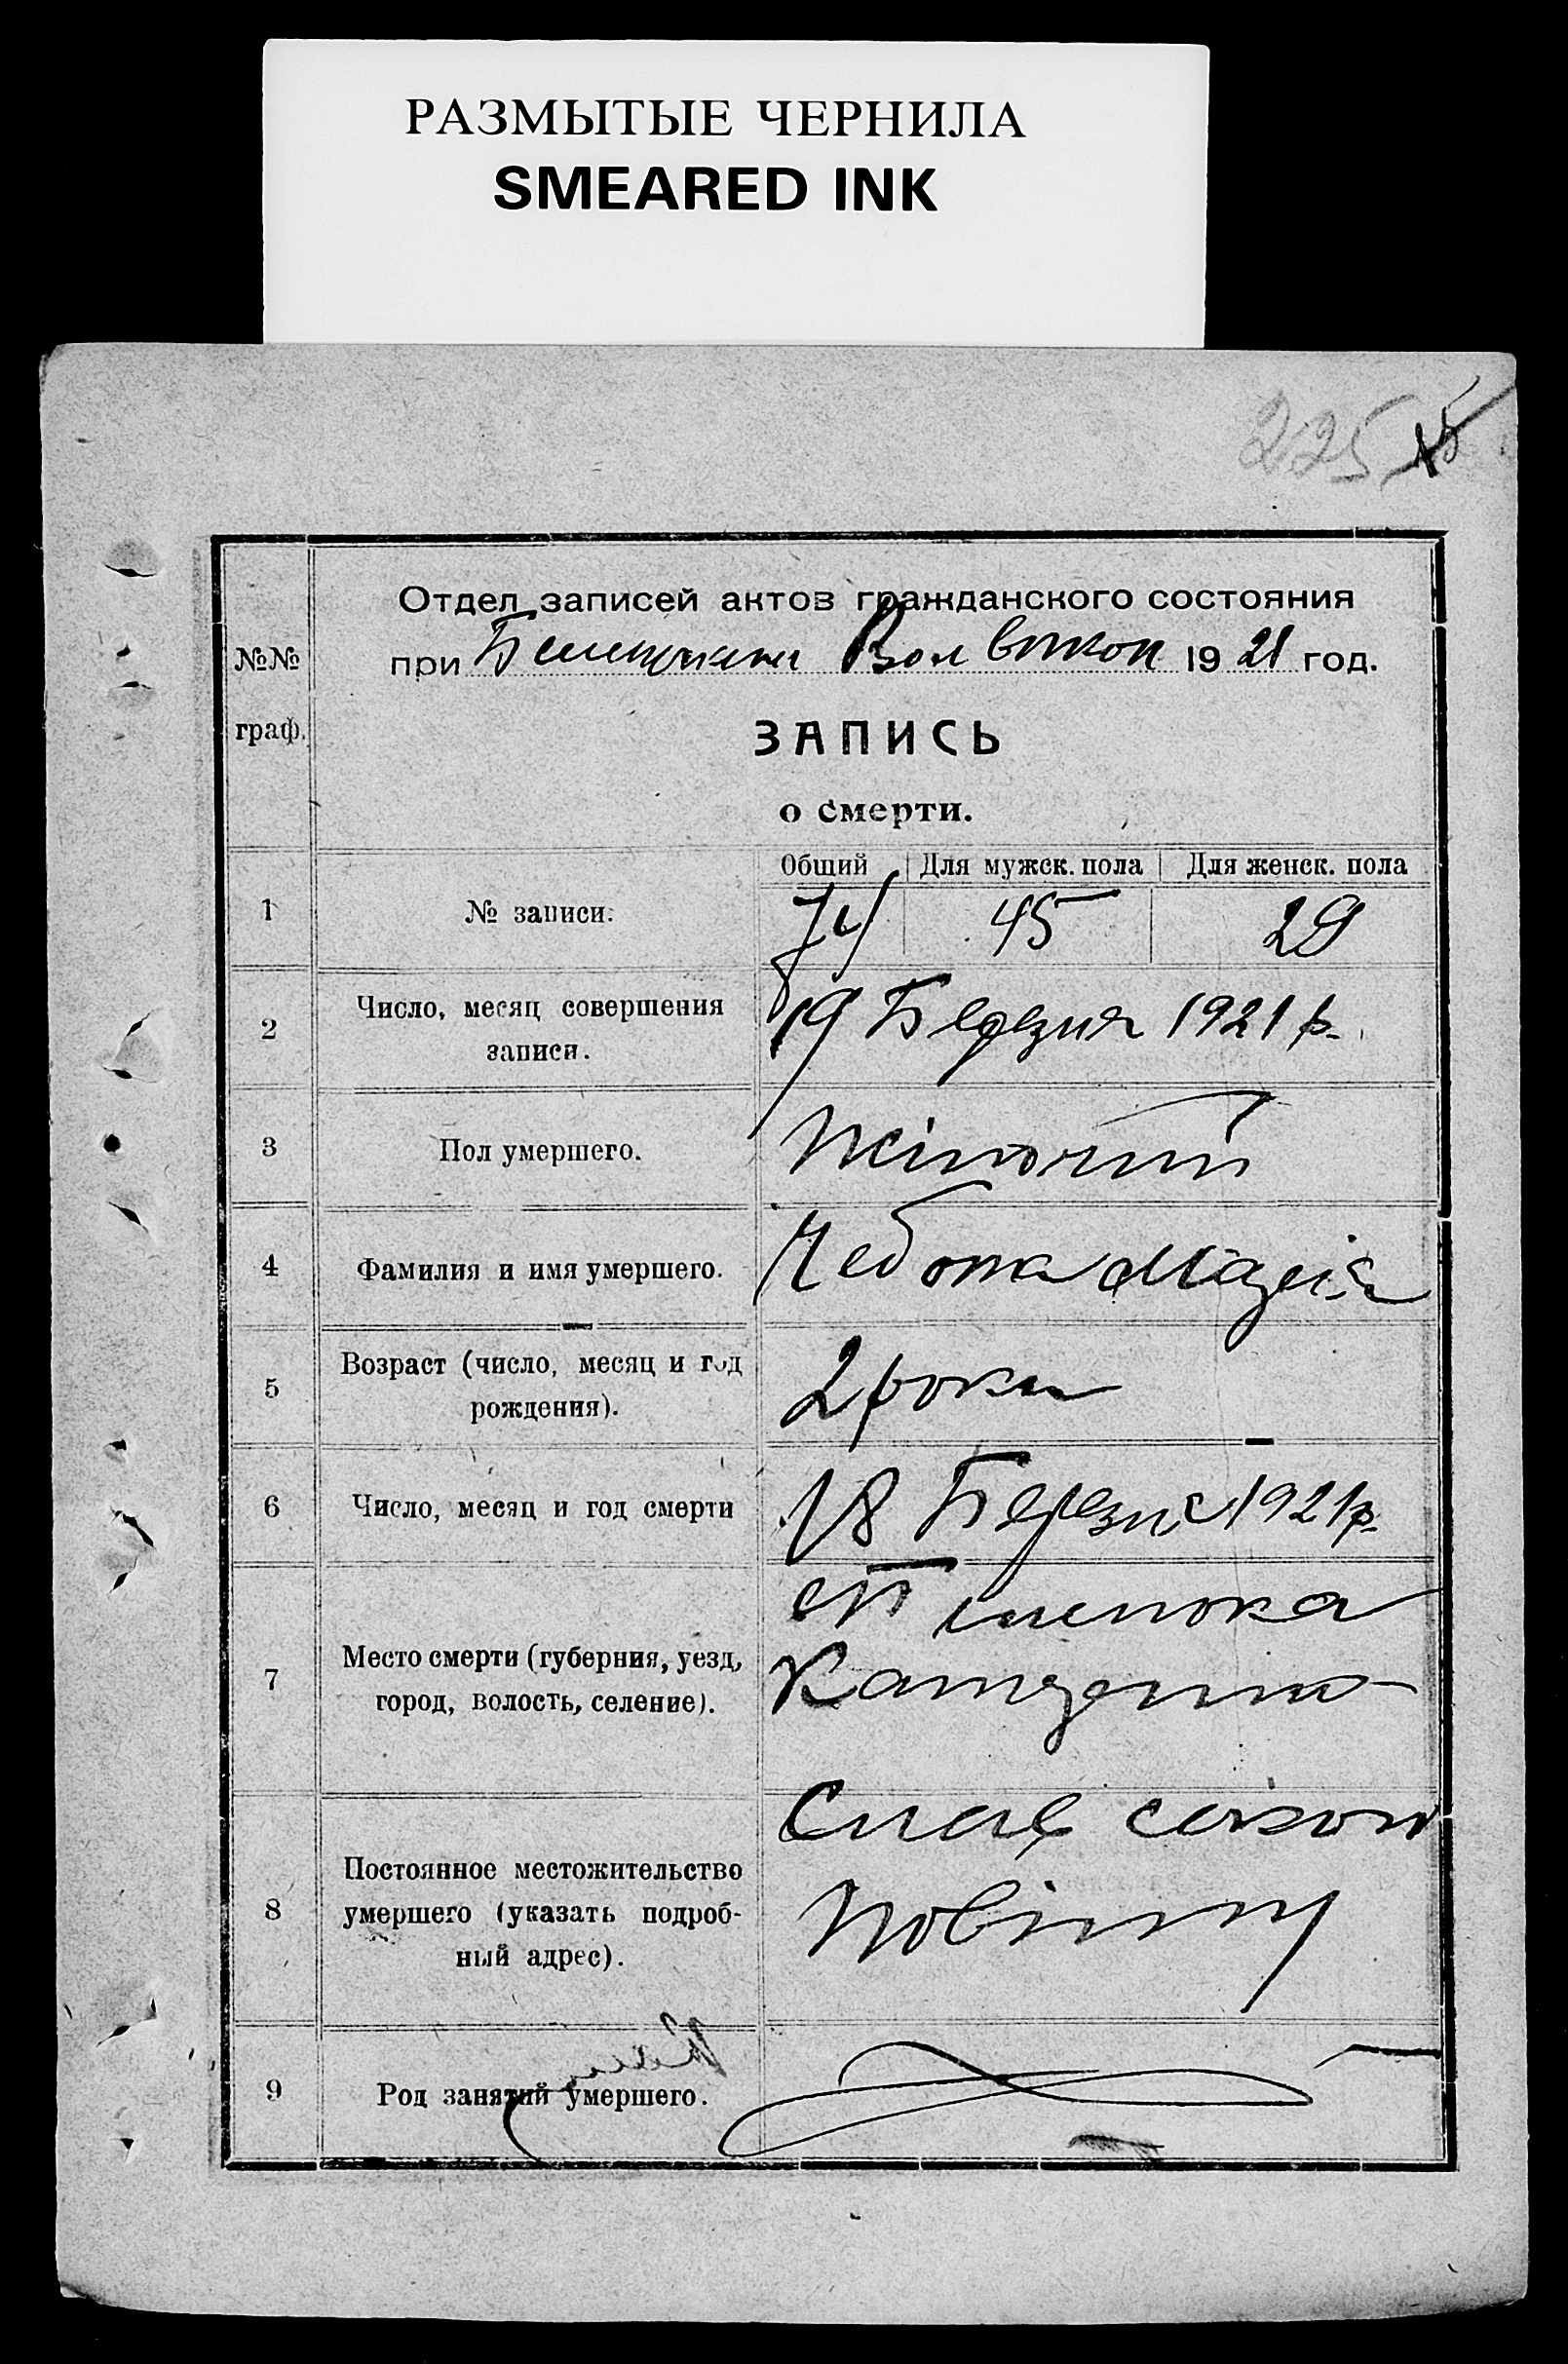 РАЗМЫТЫЕ ЧЕРНИЛА
SMEARED INK
225
№№
граф.
Отдел записей актов гражданского состояния
при Вол 1921 год.
ЗАПИСЬ
о смерти.
Общий Для мужск. пола Для женск. пола
1 № записи. 74 45 29
2 Число, месяц совершения
записи.
19 Березня 1921 р.
3 Пол умершего. Жіночий
4 Фамилия и имя умершего. Чебота Марія
5 Возраст (число, месяц и год
рождения).
2 роки
6 Число, месяц и год смерти 18 Березня 1921 р.
7 Место смерти (губерния, уезд,
город, волость, селение).
8 Постоянное местожительство
умершего (указать подроб-
ный адрес).
9 Род занятий умершего.